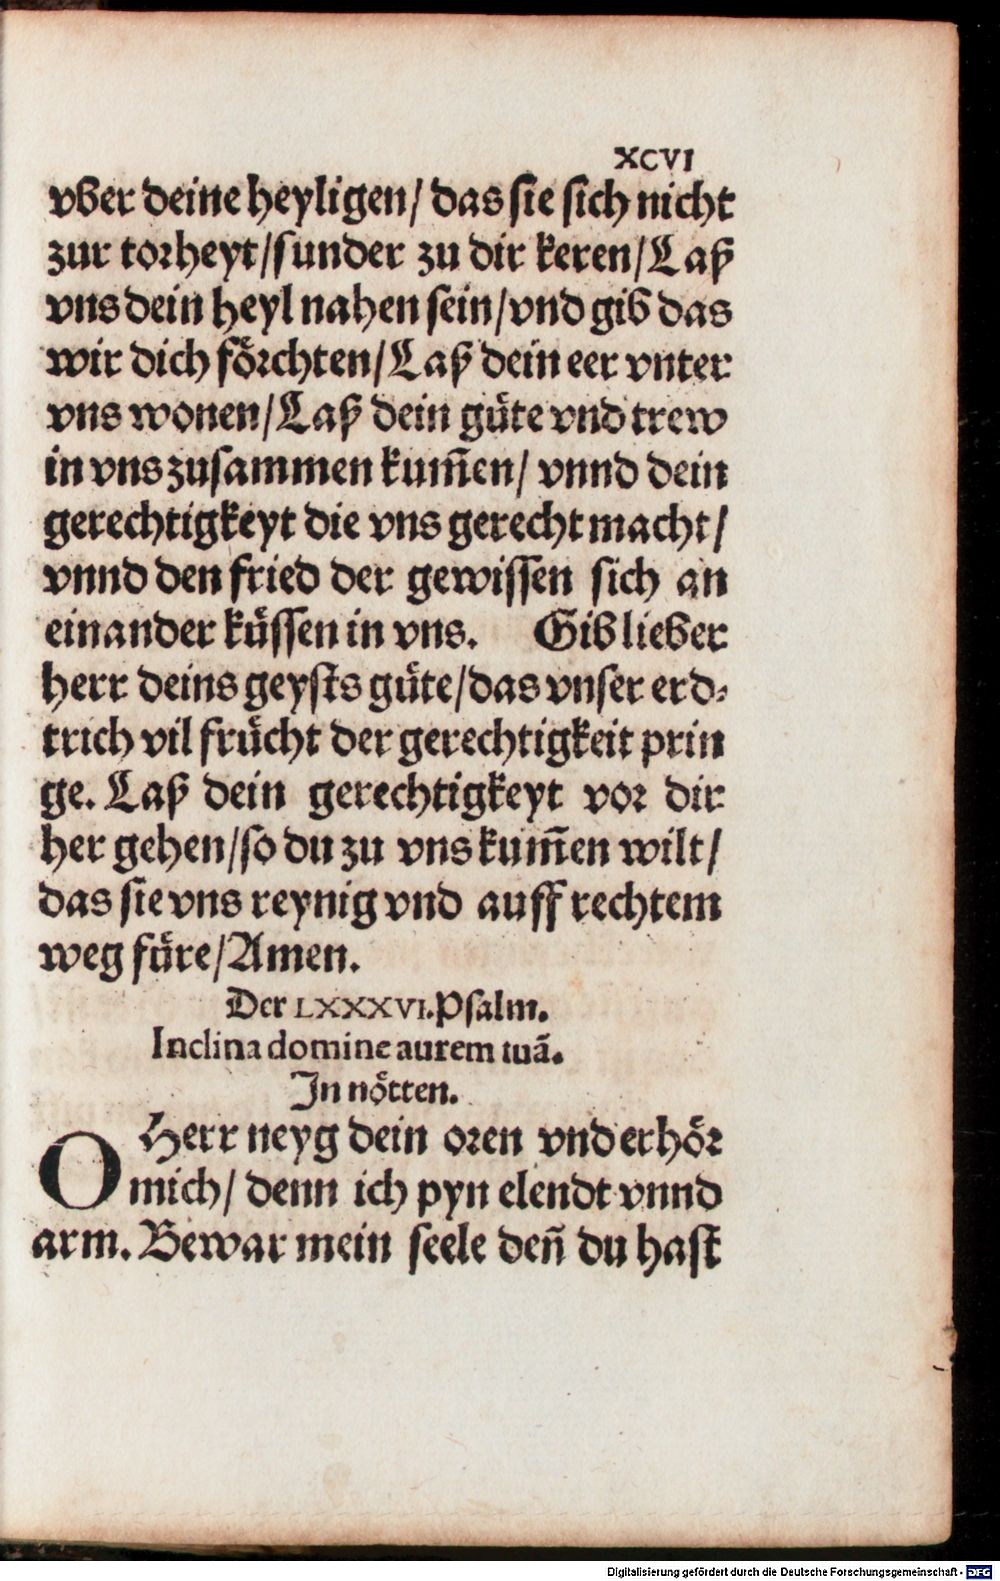 XCVI
vber deine heyligen/ das sie sich nicht
zur torheyt/sunder zu dir keren/Laß
vns dein heyl nahen sein/vnd gib das
wir dich förchten/Laß dein eer vnter
vns wonen/Laß dein güte vnd trew
in vns zusammen kum̃en/ vnnd dein
gerechtigkeyt die vns gerecht macht/
vnnd den fried der gewissen sich an
einander küssen in vns. Gib lieber
herr deins geysts güte/das vnser erd⸗
trich vil frücht der gerechtigkeit prin
ge. Laß dein gerechtigkeyt vor dir
her gehen/so du zu vns kum̃en wilt/
das sie vns reynig vnd auff rechtem
weg füre/Amen.
Der LXXXVI.Psalm.
Inclina domine aurem tuã.
In nötten.
O Herr neyg dein oren vnd erhör
mich/ denn ich pyn elendt vnnd
arm. Bewar mein seele deñ du hast
Digitalisierung gefördert durch die Deutsche Forschungsgemeinschaft - DFG